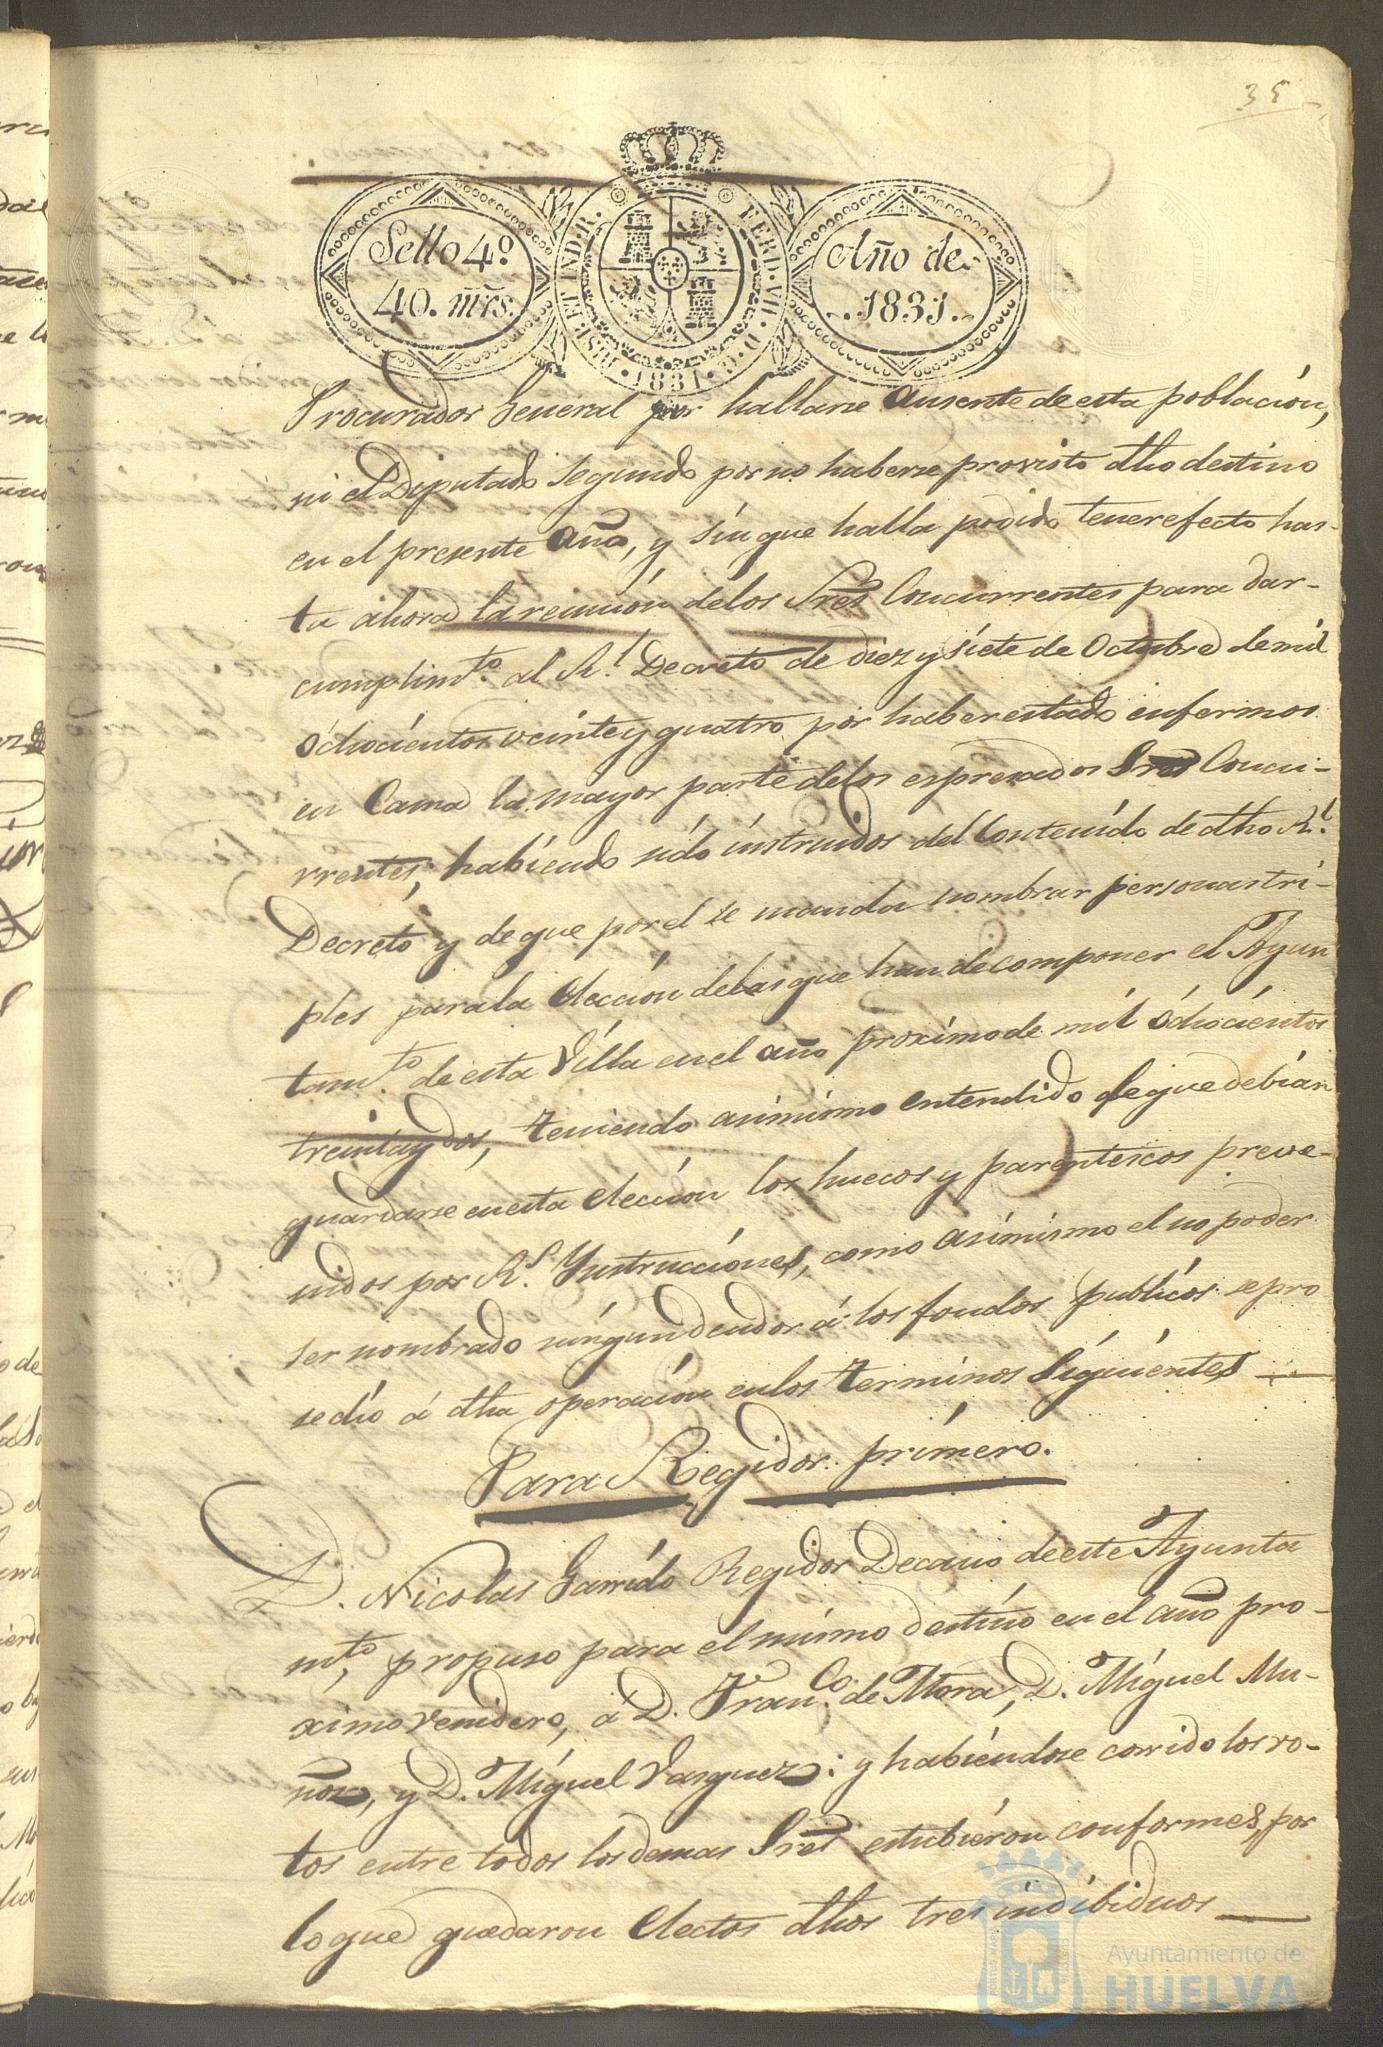 35
Sello 4º
40. mrs.
HISP. ET IND. R.
FERD. VII. D. G.
1831
Año de
1831.
Procurador General por hallarse ausente de esta población,
ni el Diputado segundo por no haberse provisto dho destino
en el presente año, y sin que halla podido tener efecto has-
ta ahora la reunión de los Sres Concurrentes para dar-
cumplimto. al Rl. Decreto de diez y siete de Octubre de mil
ochocientos veinte y quatro por haber estado enfermos
en Cama la mayor parte de los espresados Sres Concu-
rrentes; habiendo sido instruidos del Contenido de dho Rl.
Decreto y de que por el se manda nombrar personas tri-
ples para la elección de las que han de componer el Ayun
tamto. de esta Villa en el año proximo de mil ochocientos
treinta y dos, teniendo asimismo entendido de que debían
guardarse en esta elección los huecos y parentescos preve-
nidos por Rs. Ynstrucciones, como asimismo el no poder
ser nombrado ningun deudor á los fondos publicos se pro
sedio á dha operación en los terminos siguientes
Para Regidor primero.
D. Nicolas Garrido Regidor Decano de este Ayunta
mto, propuso para el mismo destino en el año pro-
ximo venidero, á D. Franco. de Mora, D. Miguel Mu-
ñoz, y D. Miguel Vasquez: y habiendose corrido los vo-
tos entre todos los demas Sres estubieron conformes, por
lo que quedaron electos dhos tres indibiduos
Ayuntamiento de
HUELVA